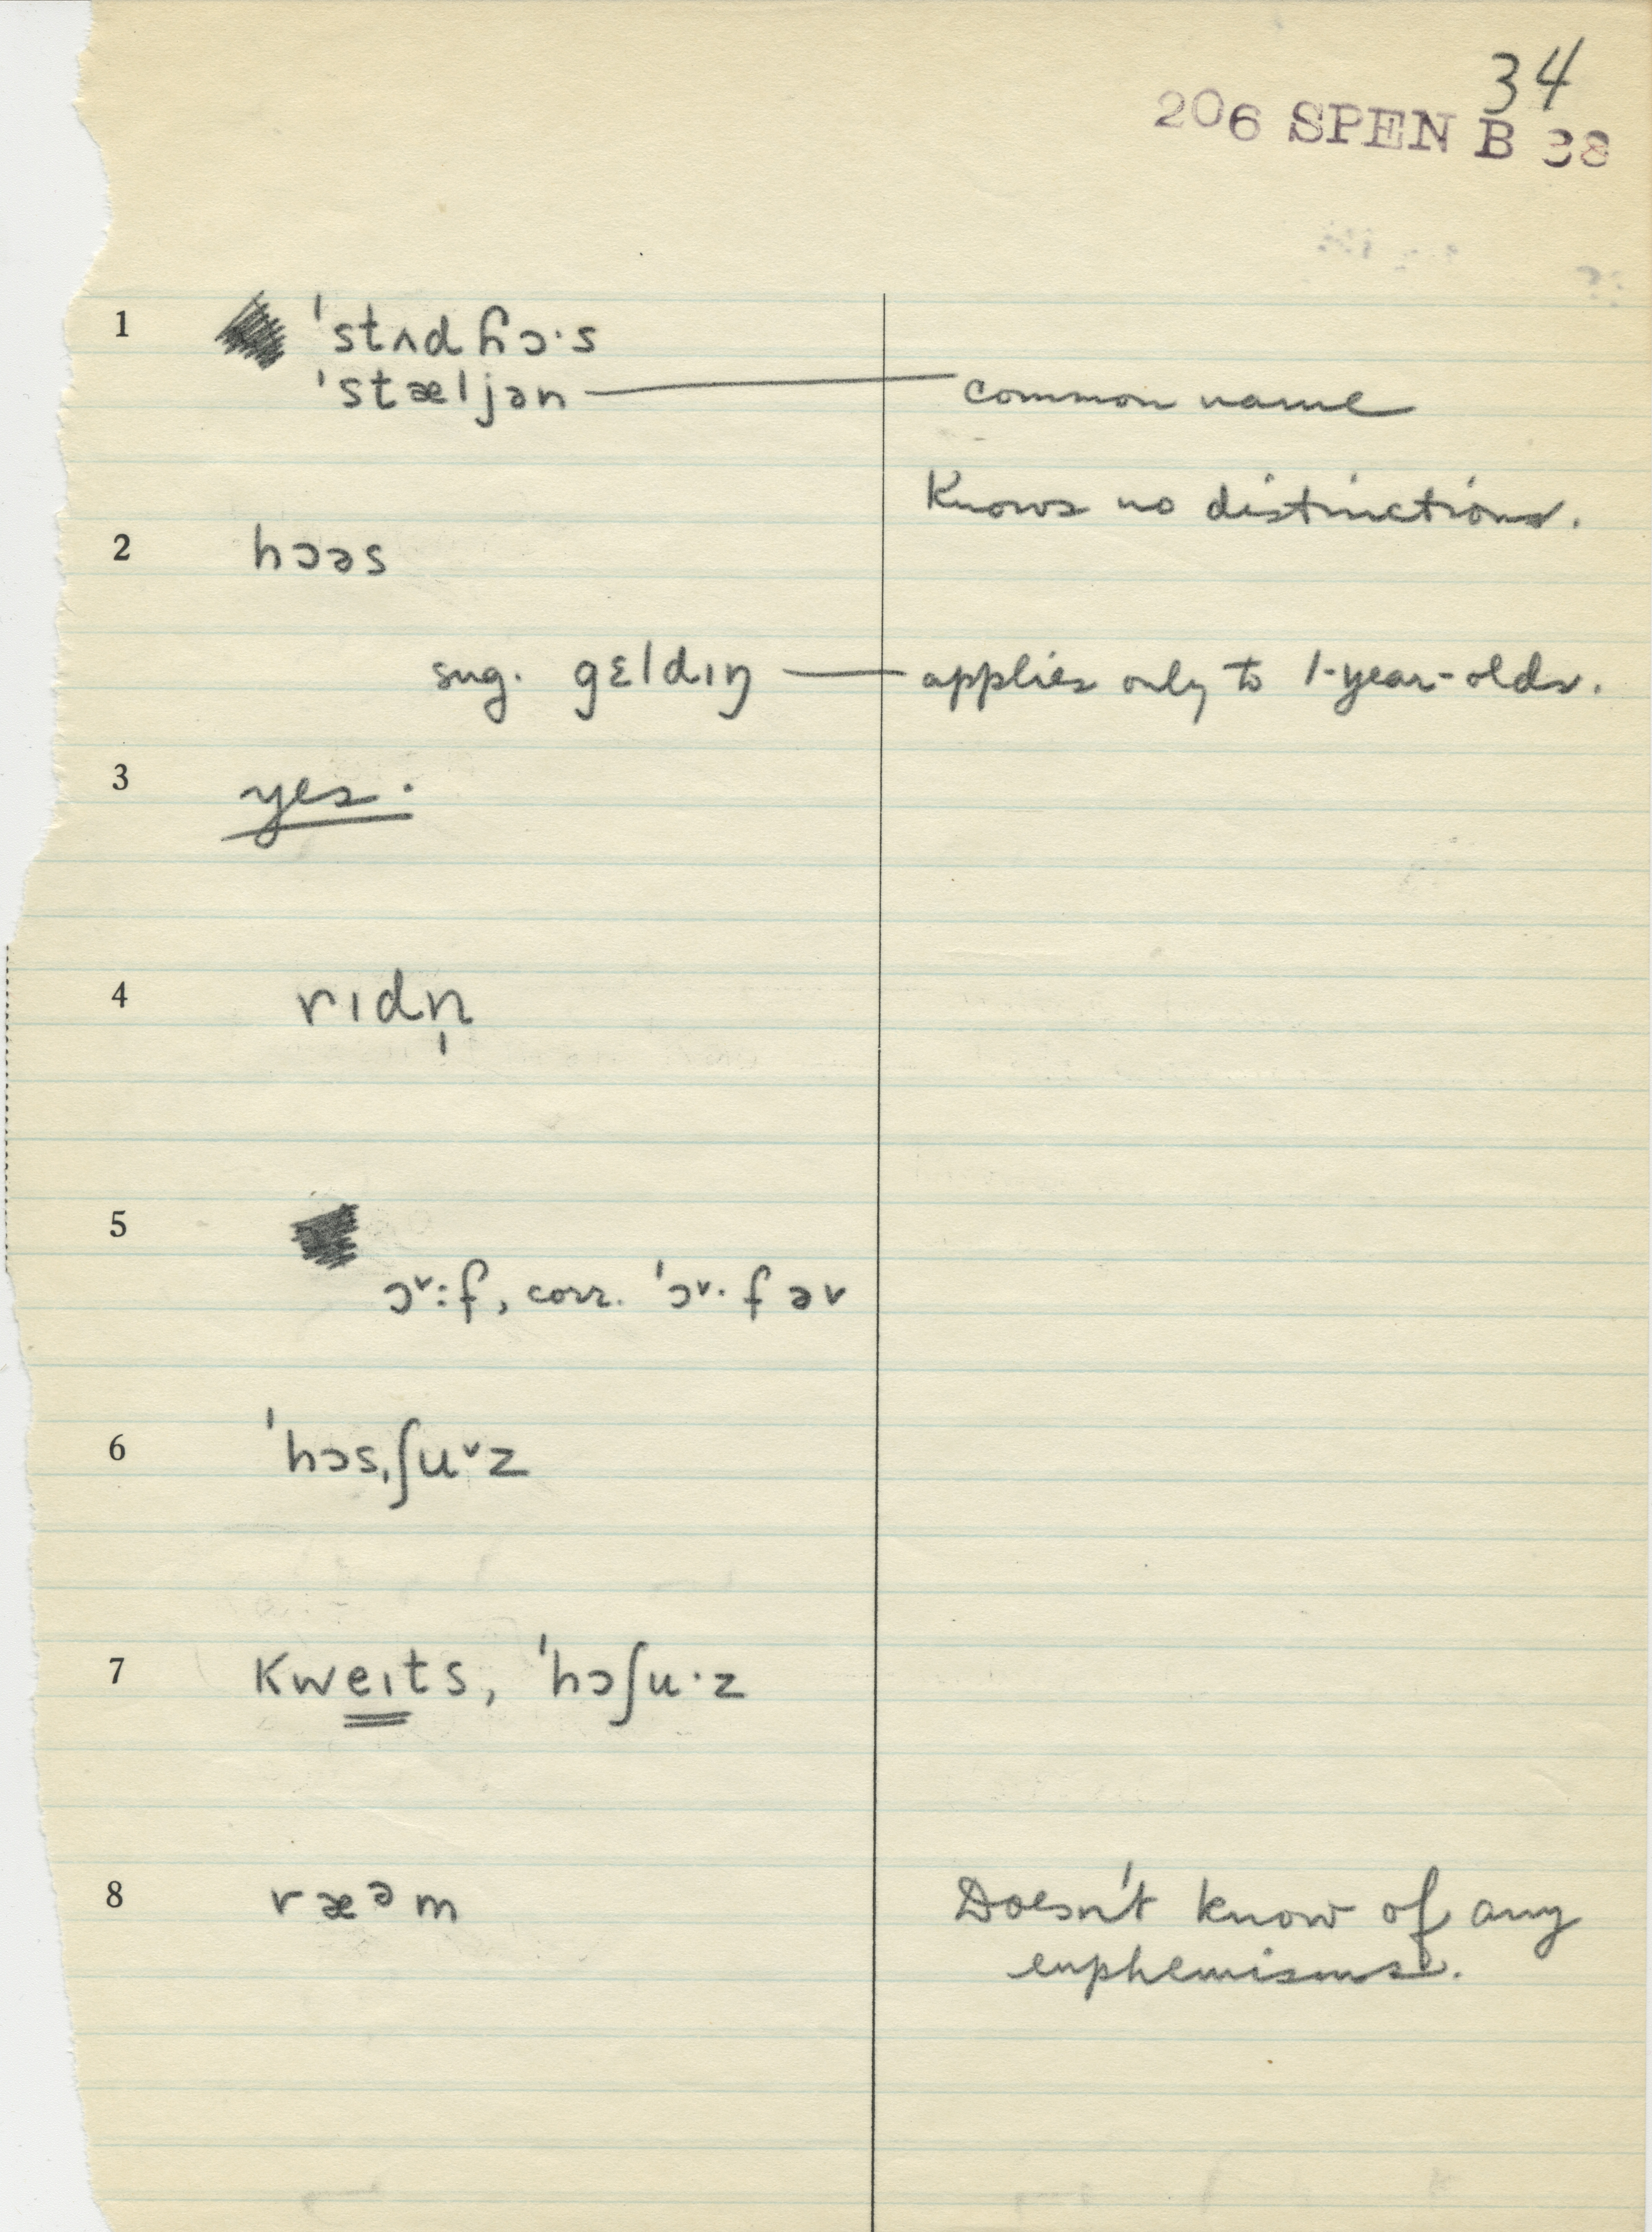 34
206 SPEN B 38
1 ˈstʌdɦɔ·s
ˈstæljən — common name
Knows no distinctions.
2 hɔəs
sug. gɛldɪŋ — applies only to 1-year-olds.
3 yes.
4 rɪdn̩
5
ɔ˅:f, corr. ˈɔ˅·fəv
6 ˈhɔsˌʃu˅z
7 kweɪts, ˈhɔʃu·z
8 ræᵊm Doesn't know of any
euphemisms.